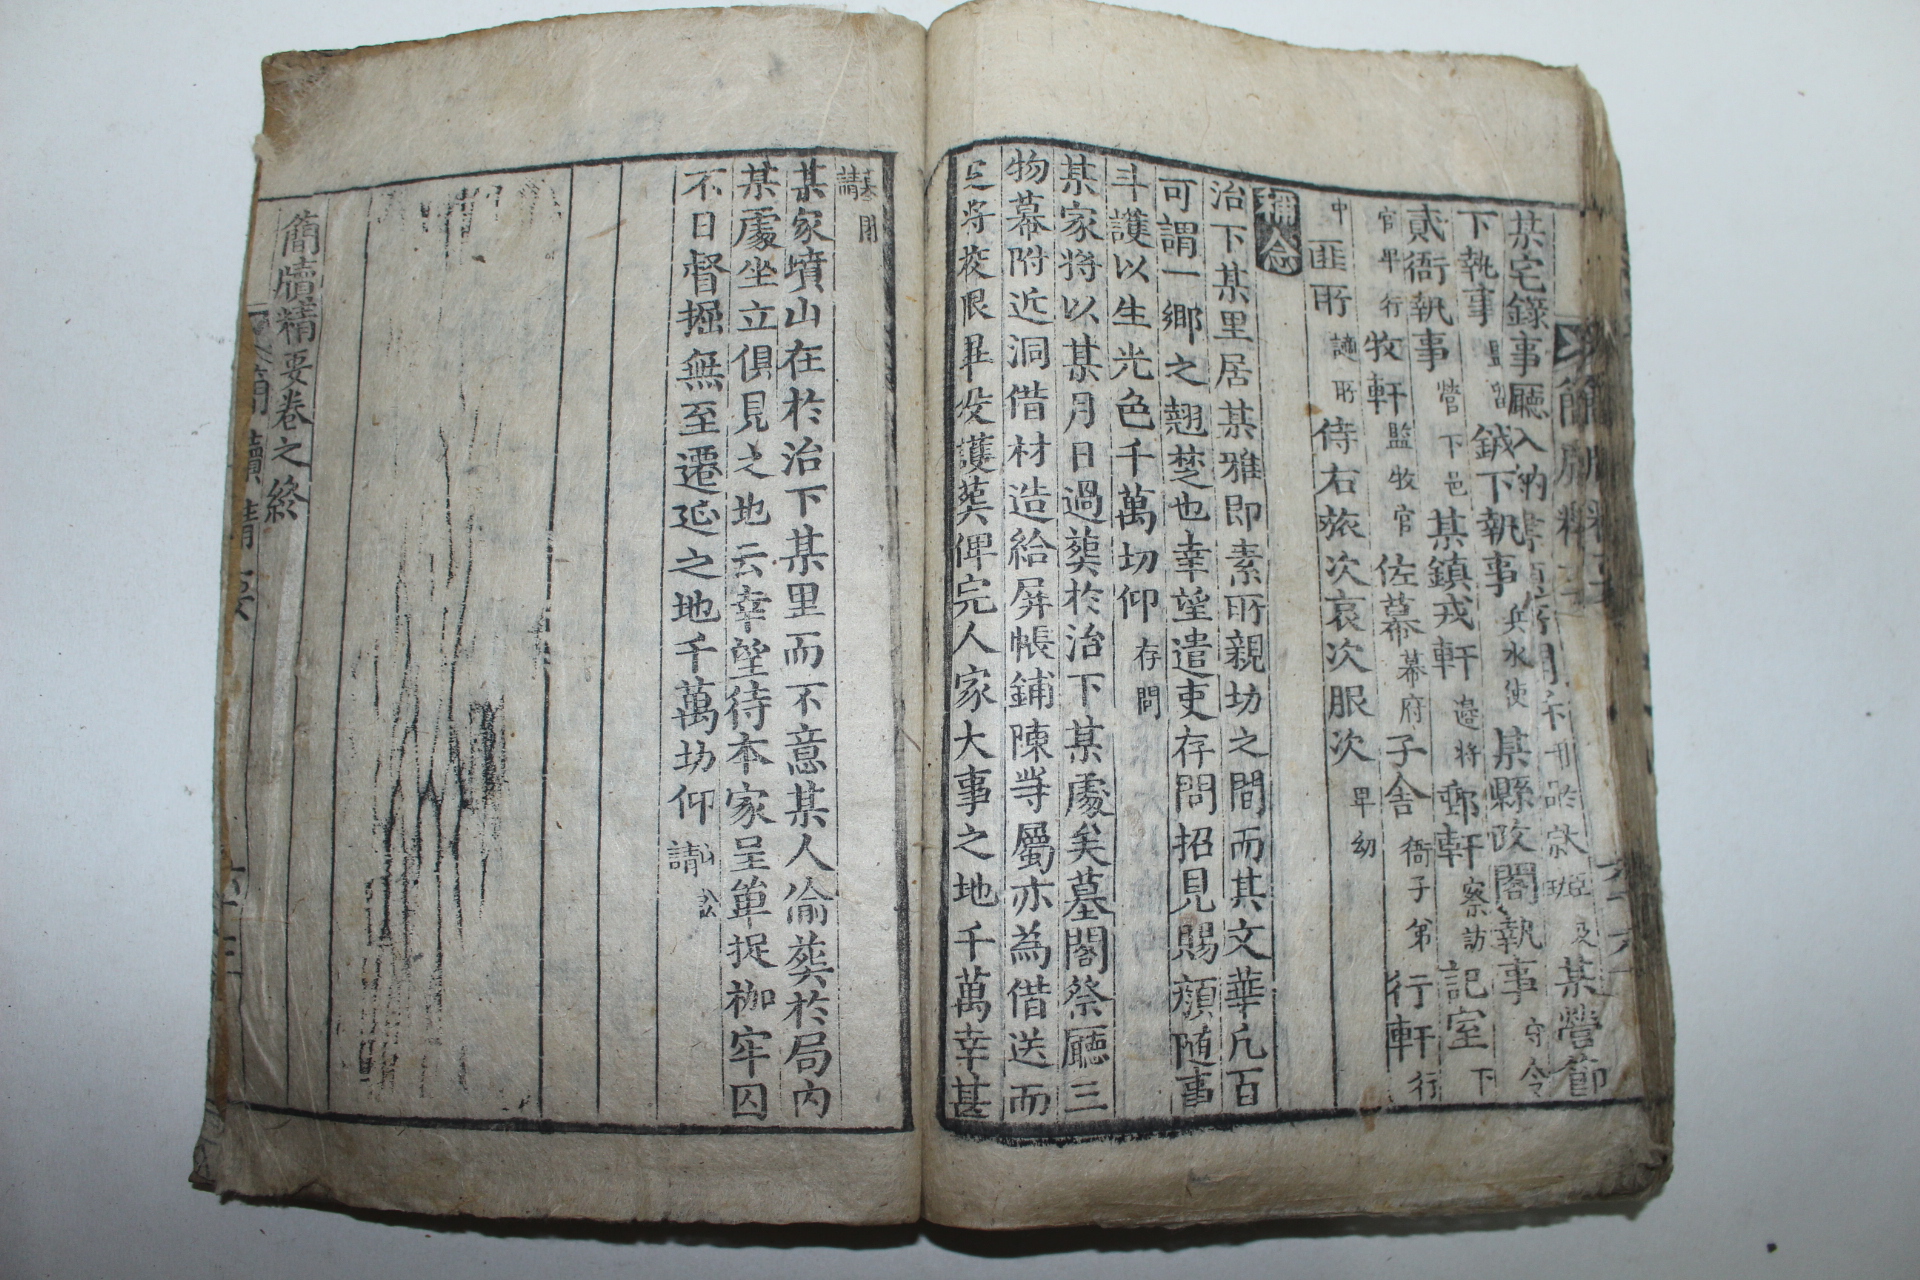 某宅錄事廳入納
某營節
下執事
鉞下執事 兵水使 某縣政閣執事 守令
貳衙執事 營下邑 某鎮戎軒 邊將 郵軒 察訪 記室 下
官 行 牧軒 監牧官 佐幕 幕府 子舍 衙子弟 行軒 行
中 匪所 謫所 侍右旅次哀次服次
稱念
治下某里居某雅即素所親切之間而其文華凡百
可謂一鄉之翹楚也幸望遣吏存問招見賜顏随事
斗護以生光色千萬切仰 存問
某家將以某月日過葬於治下某處矣墓閣祭廳三
物幕附近洞借材造給屏帳鋪陳等屬亦為借送而
定將校限畢役護葬俾完人家大事之地千萬幸甚
請 墓閣
某家墳山在於治下某里而不意某人偷葬於局內
某處坐立俱見之地云幸望待本家呈單捉枷牢囚
不日督掘無至遷延之地千萬切仰 請 訟
簡牘精要卷之終
簡牘精要